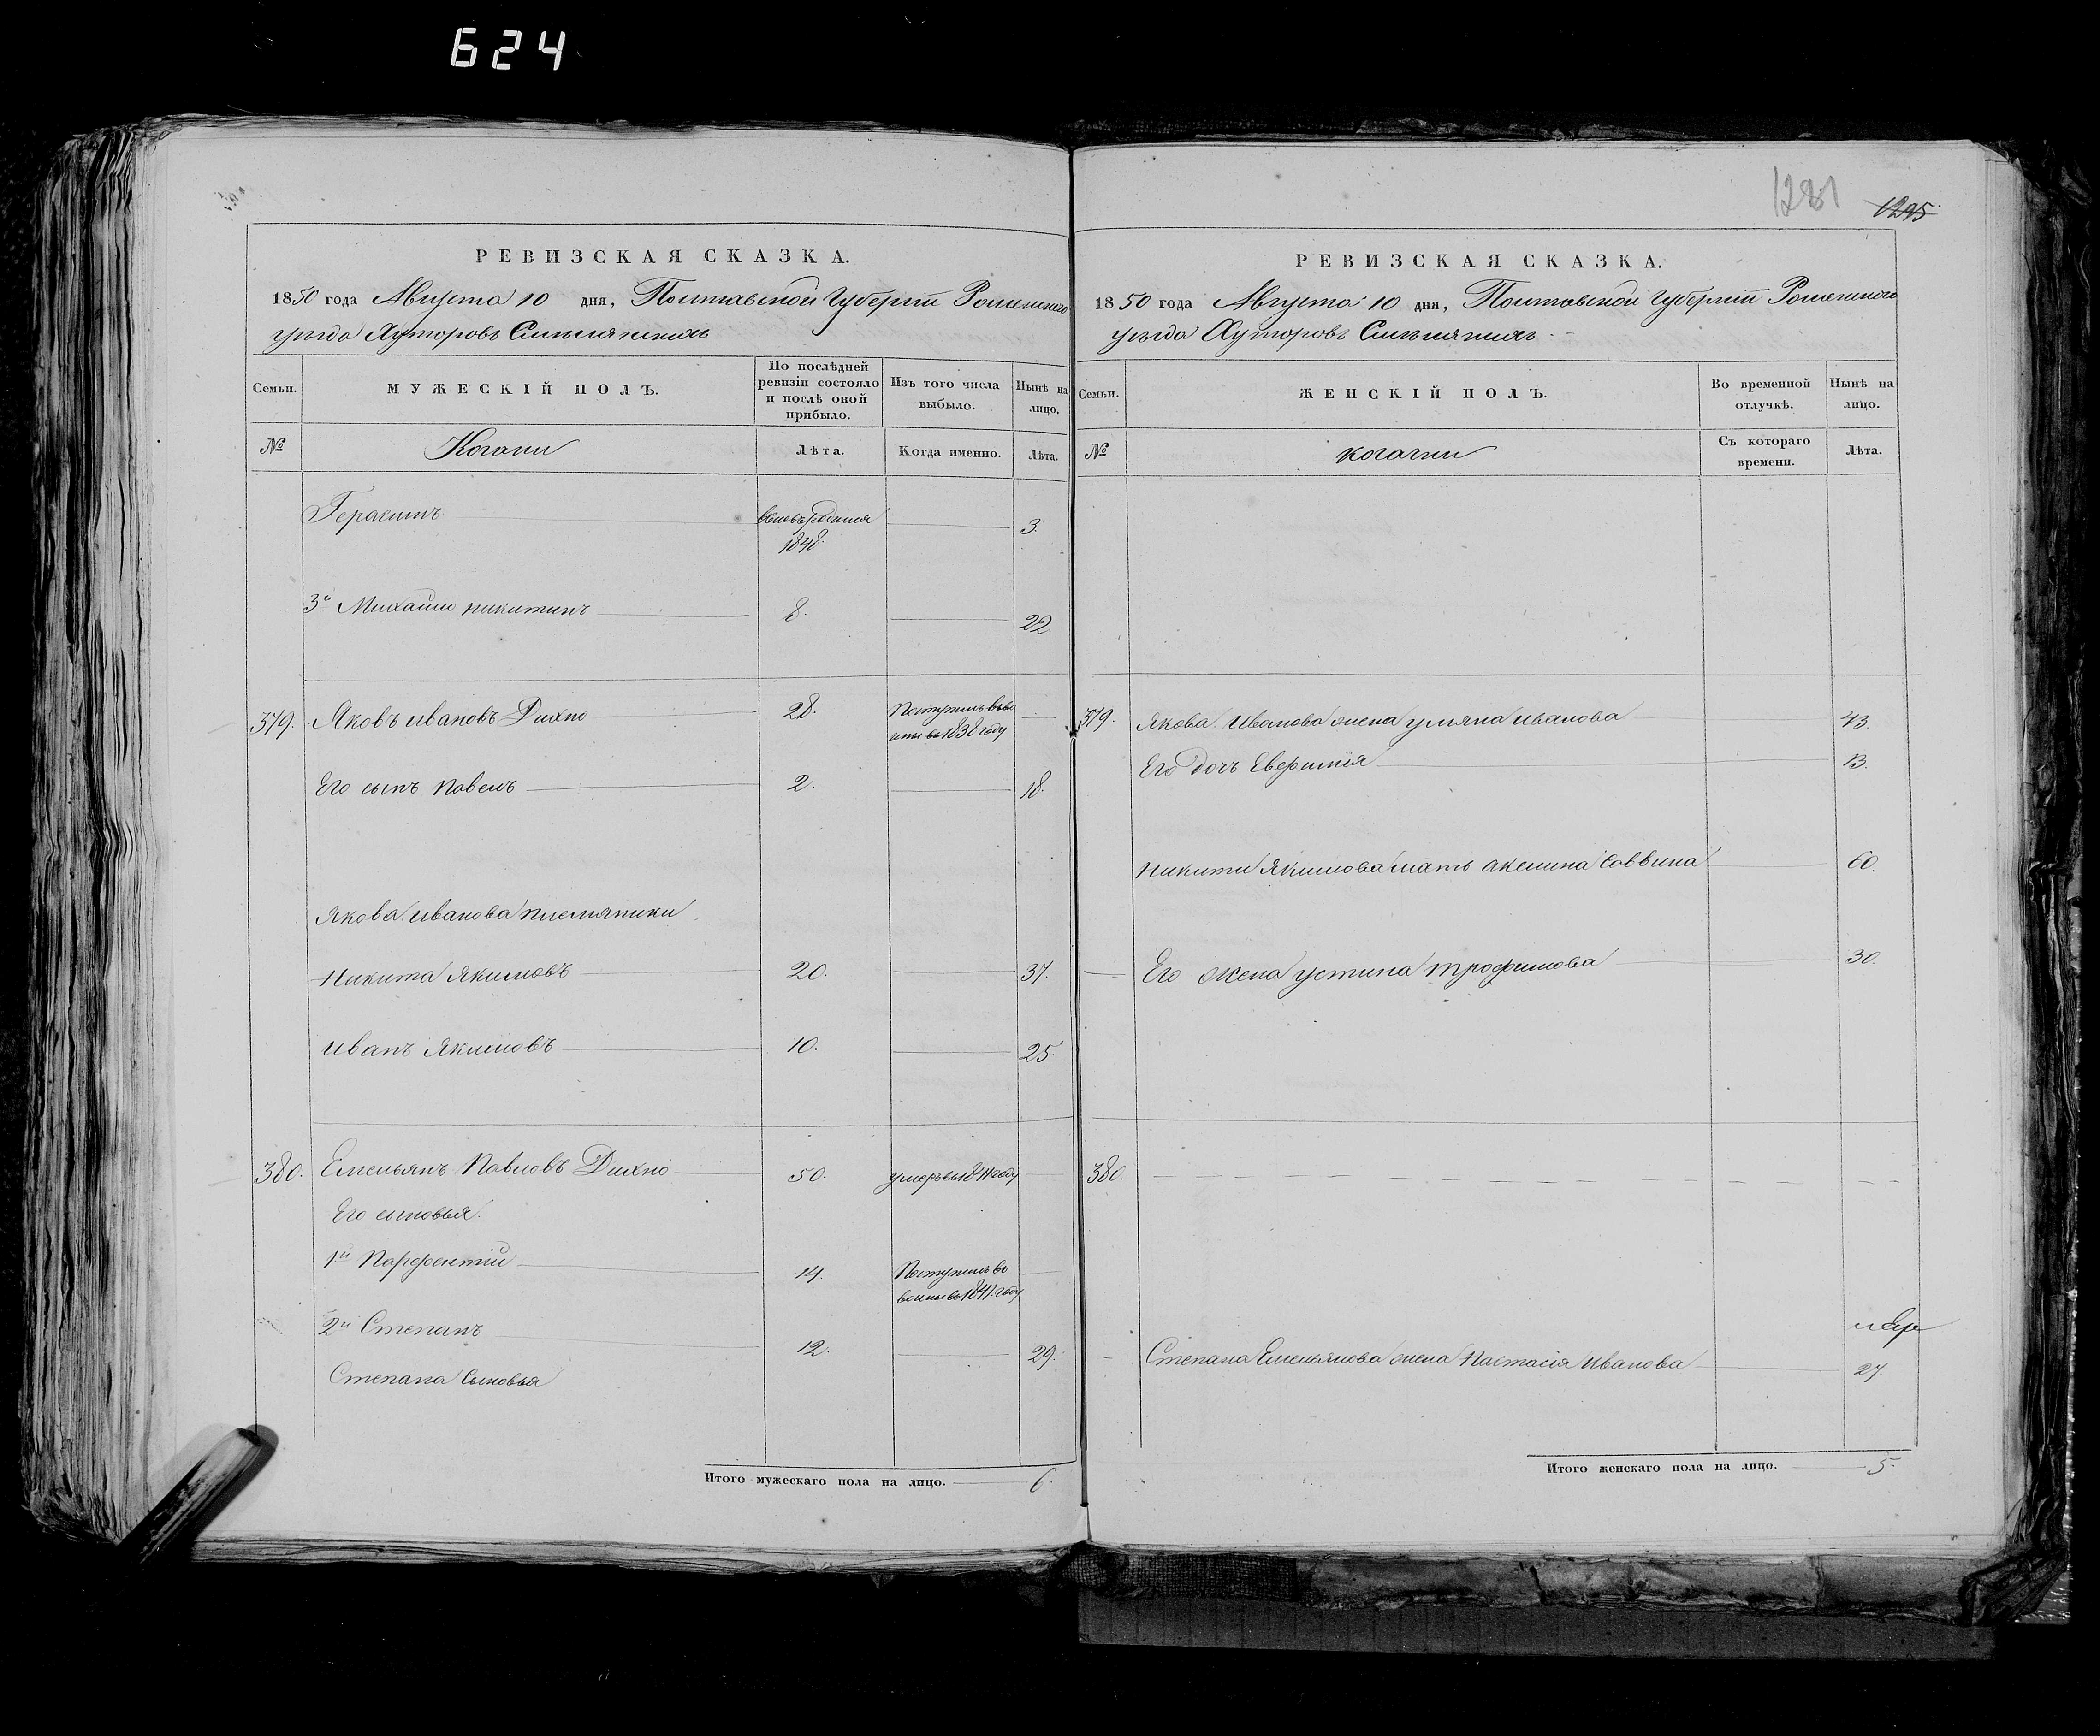 624
1281
1295
РЕВИЗСКАЯ СКАЗКА.
1850 года Августа 10 дня, Полтавской Губернiи Роменского
уезда Хуторовъ
Семьи.
МУЖЕСКІЙ ПОЛЪ.
По послѣдней ревизіи состояло и послѣ оной прибыло.
Изъ того числа выбыло.
Нынѣ на лицо.
№
Лѣта.
Когда именно.
Лѣта.
Герасимъ
вновь рожденъ 1848.
3.
3й Михайло Никитинъ
8.
22.
379.
Яковъ Ивановъ Дихно
28.
Поступилъ въ 1838 году
Его сынъ Павелъ
2.
18.
Якова Иванова племянники
Никита Якимовъ
20.
37.
Иванъ Якимовъ
10.
25.
380.
Емельянъ Павловъ Дихно
50.
умеръ въ году
Его сыновья.
1й Парфентій
14.
Поступилъ во году
2й Степанъ
12.
29.
Степана Сыновья
Итого мужескаго пола на лицо.
6.
РЕВИЗСКАЯ СКАЗКА.
1850 года Августа 10 дня, Полтавской Губернiи Роменского
уезда Хуторовъ
Семьи.
ЖЕНСКІЙ ПОЛЪ.
Во временной отлучкѣ.
Нынѣ на лицо.
№
Съ котораго времени.
Лѣта.
379.
Якова Иванова жена Уляна Иванова
43.
Его дочь Евфимія
13.
Никиты Якимова мать Акелина Саввина
60.
Его жена Устина Трофимова
30.
380.
Степана Емельянова жена Настасія Иванова
27.
Итого женскаго пола на лицо.
5.